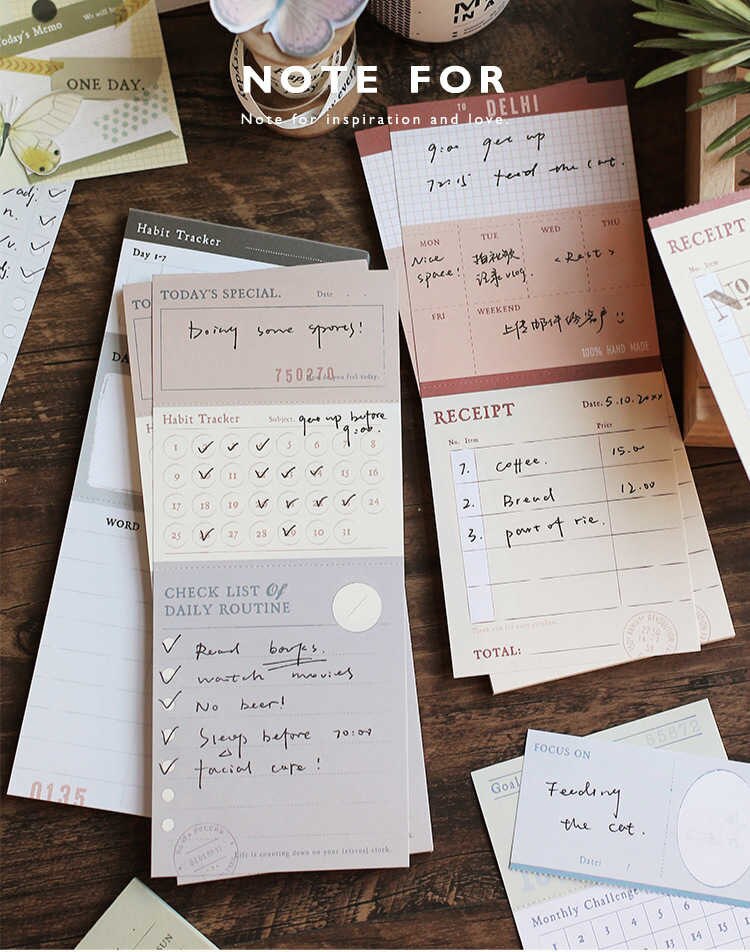 NOTE FOR
Note for inspiration and love.
Today's Memo
We will
ONE DAY.
adj.
n.
v.
adj.
Habit Tracker
Day 1-7
WORD
0135
TODAY'S SPECIAL.
Date
Doing some spores!
750270
you feel today.
Habit Tracker
Subject.
get up before
9:00.
1 5 6 7 8
9 11 15 16
17 18 19 24
25 27 28 30 31
CHECK LIST Of
DAILY ROUTINE
Read books.
watch movies
No beer!
Sleep before 10:00
facial care!
Life is counting down on your internal clock.
TO DELHI
9:00 get up
12:15 feed the cat.
MON TUE WED THU
Nice
space!
拍视频
记录vlog.
<Rest>
FRI WEEKEND
上传邮件给客户
100% HAND MADE
RECEIPT
Date. 5.10.20xx
No. Item Price
1. coffee. 15.00
2. Bread 12.00
3. part of rie.
TOTAL:
RECEIPT
No. Item
No
65872
Goal
FOCUS ON
Feeding
the cat.
Date:
Monthly Challenge
1 2 3 4 5 6
12 13 14 15
SUN